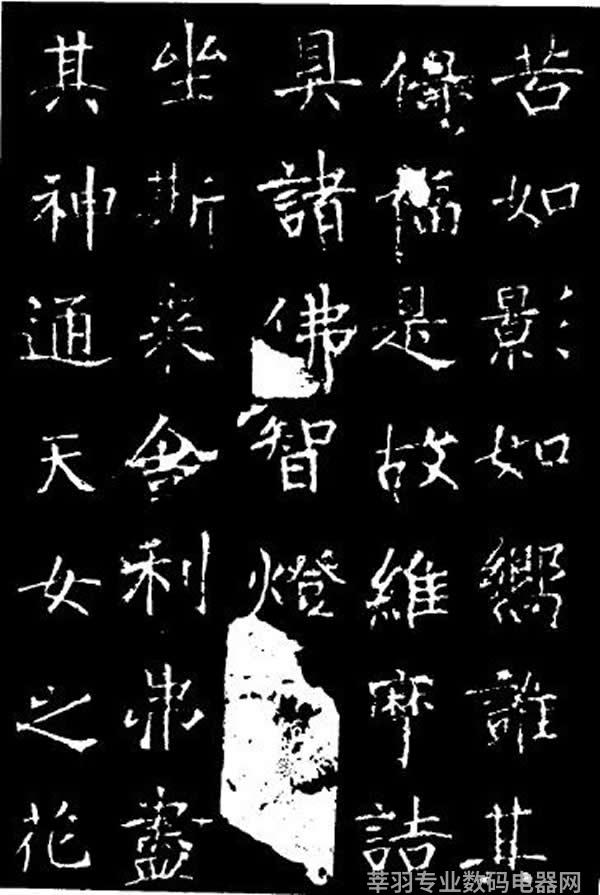 苦如影如嚮誰其
保福是故維摩詰
具諸佛智燈
坐斯来舍利弗盡
其神通天女之花
莘羽专业数码电器网